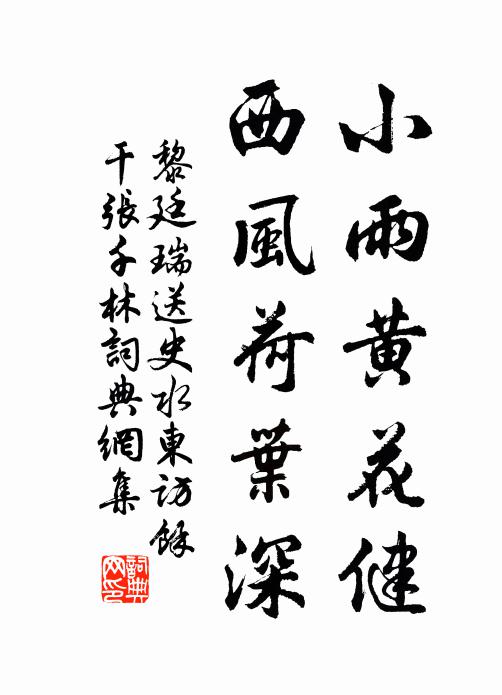 小雨黄花健
西風荷葉深
黎廷瑞送史水東訪餘
干張千林詞典網集
詞典網印